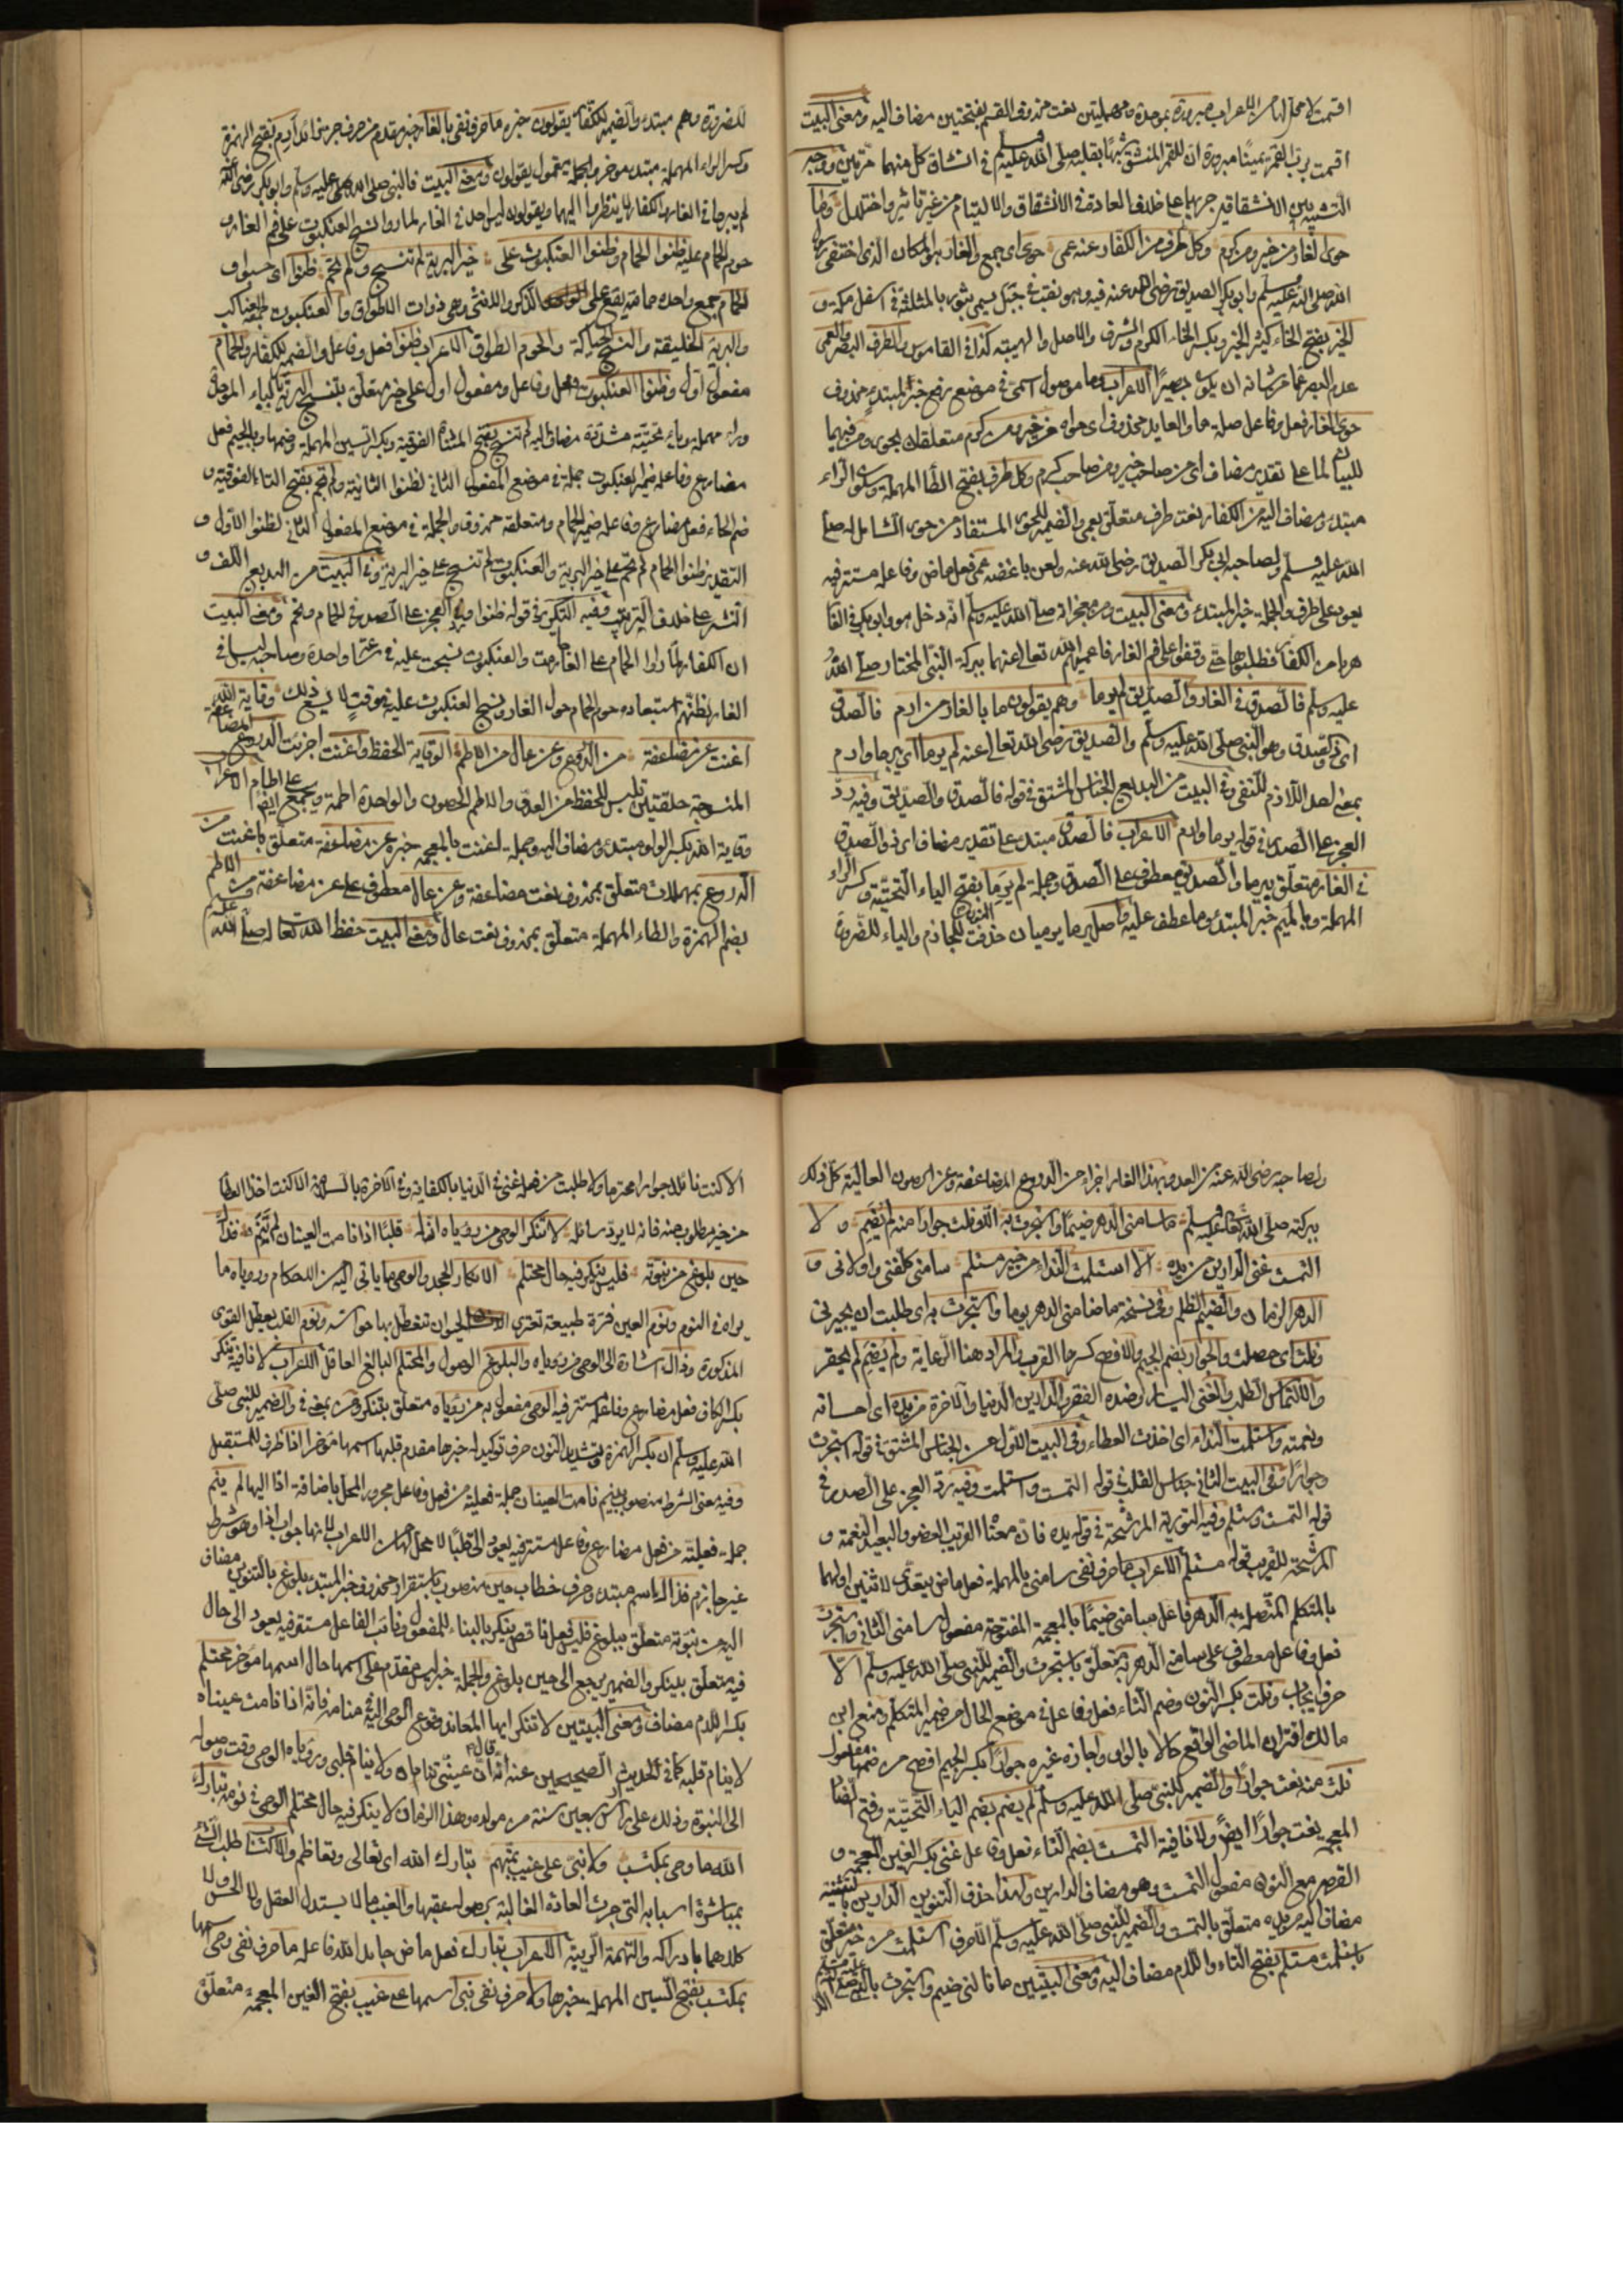 اقسمت لا محل لها من الاعراب مبرورة بموحدة ومهملتين نعت محذوف القسم بفتحتين مضاف اليه ومعنى البيت
اقسمت برب القمر يمينًا مبرورة ان للقمر المنشق شبهًا بقلبه صلى الله عليه وسلم في انشقاق كل منهما مرتين ووجه
التشبيه بين الانشقاقين جريهما على خلاف العادة في الانشقاق والالتيام من غير تأثير واختلال وما
حوى الغار من خير ومن كرم وكل طرف من الكفار عنه عمى حوى اى جمع والغار هو المكان الذى اختفى رسول
الله صلى الله عليه وسلم وابو بكر الصديق رضى الله عنه فيه وهو نقب في جبل يسمى بثور بالمثلثة في اسفل مكة و
الخير بفتح الخاء كثير الخير وبكسر الخاء الكرم والشرف والاصل والهيئة كذا في القاموس والطرف البصر والعمى
عدم البصر عما من شانه ان يكون بصيرًا الاعراب وما موصول اسمى في موضع رفع خبر لمبتدء محذوف
حوى الغار فعل وفاعل صلة ما والعايد محذوف اى حواه من خير ومن كرم متعلقان بحوى ومن فيهما
للبيان لما على تقدير مضاف اى من صاحب خير ومن صاحب كرم وكل طرف بفتح الطا المهملة وسكون الراء
مبتدء ومضاف اليه من الكفار نعت طرف متعلق بعمى والضمير للحوى المستفاد من حوى الشامل له صلى
الله عليه وسلم ولصاحبه ابى بكر الصديق رضى الله عنه ولعن باغضه عمى فعل ماض وفاعله مستتر فيه
يعود على طرف والجملة خبر المبتدء ومعنى البيت ومن معجزاته صلى الله عليه وسلم انه دخل هو وابو بكر في الغار
هربا من الكفار فطلبوهما حتى وقفوا على فم الغار فاعميهم الله تعالى عنهما ببركة النبى المختار صلى الله
عليه وسلم فالصدق في الغار والصديق لم يرما وهم يقولون ما بالغار من ارم فالصدق
اى ذى الصدق وهو النبى صلى الله عليه وسلم والصديق رضى الله تعالى عنه لم يرما اى يبرحا وارم
بمعنى احد اللازم للنفى وفى البيت من البديع الجناس المشتق في قوله فالصدق والصديق وفيه رد
العجز على الصدر في قوله يرما وارم الاعراب فالصدق مبتدء على تقدير مضاف اى ذو الصدق
في الغار متعلق بيرما والصديق معطوف على الصدق وجملة لم يرما بفتح الياء التحتية وكسر الراء
المهملة وبالميم خبر المبتدء وما عطف عليه واصل يرما يرميان حذفت النون للجازم والياء للضرورة
للضرورة وهم مبتدء والضمير للكفار يقولون خبره ما حرف نفى بالغار خبر مقدم من حرف جر زائد ارم بفتح الهمزة
وكسر الراء المهملة مبتدء مؤخر والجملة مقول يقولون ومعنى البيت فالنبى صلى الله عليه وسلم وابو بكر رضى الله عنه
لم يبرحا في الغار والكفار لا ينظروا اليهما ويقولون ليس احد في الغار لما روا نسج العنكبوت على فم الغار و
حوم الحمام عليه ظنوا الحمام وظنوا العنكبوت على خير البرية لم تنسج ولم تحم ظنوا اى حسبوا و
الحمام جمع واحده حمامة يقع على الذكر والانثى وهى ذوات الاطواق والعنكبوت جمعه عناكب
والبرية الخليقة والنسج الحياكة والحوم الطواف الاعراب ظنوا فعل وفاعل والضمير للكفار والحمام
مفعول اول وظنوا العنكبوت فعل وفاعل ومفعول اول على خير متعلق بتنسج البرية بالباء الموحدة
وراء مهملة وياء تحتية مشددة مضاف اليه لم تنسج بفتح المثناة الفوقية وبكسر السين المهملة وضمها وبالجيم فعل
مضارع وفاعله ضمير العنكبوت جملة في موضع المفعول الثانى لظنوا الثانية ولم تحم بفتح التاء الفوقية و
ضم الحاء فعل مضارع وفاعله ضمير الحمام ومتعلقه محذوف والجملة في موضع المفعول الثانى لظنوا الاول و
التقدير ظنوا الحمام لم تحم على خير البرية والعنكبوت لم تنسج على خير البرية وفى البيت من البديع اللف و
النشر على خلاف الترتيب وفيه التكرير في قوله ظنوا ورد العجز على الصدر في الحمام وتحم ومعنى البيت
ان الكفار لما راوا الحمام على الغار حامت والعنكبوت نسجت عليه في واحدة وصاحبه ليسا في
الغار لظنهم استبعاده حوم الحمام حول الغار ونسج العنكبوت عليه في وقت لا يسع ذلك وقاية الله
اغنت عن مضاعفة من الدروع وعن عال من الاطم الوقاية الحفظ واغنت اجزءت الدروع المضاعفة
المنسوجة حلقتين تلبس للحفظ من العدو والاطم الحصون والواحدة اطمة ويجمع ايضا على اطام الاعراب
وقاية الله بكسر الواو مبتدء ومضاف اليه وجملة اغنت بالمعجمة خبره عن مضاعفة متعلق باغنت من
الدروع بمهملات متعلق بمحذوف نعت مضاعفة وعن عال معطوف على عن مضاعفة من الاطم
بضم الهمزة والطاء المهملة متعلق بمحذوف نعت عال ومعنى البيت حفظ الله تعالى له صلى الله عليه وسلم
ولصاحبه رضى الله عنه من العدو بهذا الغار اجزاء من الدروع المضاعفة وعن الحصون العالية كل ذلك
ببركته صلى الله تعالى عليه وسلم ما سامنى الدهر ضيمًا واستجرت به الا ونلت جوارا منه لم يضم ولا
التمست غنى الدارين من يده الا استلمت الندا من خير مستلم سامنى كلفنى واولانى و
الدهر الزمان والضيم الظلم وفى نسخة ما ضامنى الدهر يوما واستجرت به اى طلبت ان يجيرنى
ونلت اى حصلت والجوار بضم الجيم والافصح كسرها القرب والمراد هنا الرعاية ولم يضم لم يحقر
والالتماس الطلب والغنى اليسار وضده الفقر والدارين الدنيا والاخرة من يده اى احسانه
ونعمته واستلمت الندا اى اخذت العطاء وفى البيت الاول من الجناس المشتق في قوله استجرت
وجوارًا وفى البيت الثانى جناس القلب في قوله التمست واستلمت وفيه رد العجز على الصدر في
قوله التمست ومستلم وفيه التورية المرشحة في قوله يده فان معناه القريب العضو والبعيد النعمة و
المرشحة للقريب قوله مستلم الاعراب ما حرف نفى سامنى بالمهملة فعل ماض يتعدى لاثنين اولهما
يا المتكلم المتصلة به الدهر فاعل سامنى ضيمًا بالمعجمة المفتوحة مفعول سامنى الثانى واستجرت
فعل وفاعل معطوف على سامنى الدهر به متعلق باستجرت والضمير للنبى صلى الله عليه وسلم الا
حرف ايجاب ونلت بكسر النون وضم التاء فعل وفاعل في موضع الحال من ضمير المتكلم ومنع ابن
مالك اقتران الماضى الواقع حالا بالواو واجازه غيره جوارًا بكسر الجيم افصح من ضمها مفعول
نلت منه نعت جوارًا والضمير للنبى صلى الله عليه وسلم لم يضم بضم الياء التحتية وفتح الضاد
المعجمة نعت جوارًا ايضًا ولا نافية التمست بضم التاء فعل وفاعل غنى بكسر الغين المعجمة و
القصر مع النون مفعول التمست وهو مضاف الدارين ولهذا حذف التنوين الدارين بالتثنية
مضاف اليه من يده متعلق بالتمست والضمير للنبى صلى الله عليه وسلم الا حرف استلمت من خير متعلق
باستلمت مستلم بفتح التاء واللام مضاف اليه ومعنى البيتين ما نالنى ضيم واستجرت بالنبى صلى الله عليه وسلم
الا كنت نائلا جوارا محترما ولا طلبت من فضله غنى في الدنيا بالكفاية وفى الاخرة بالسلامة الا كنت اخذ العطا
من خير مطلوب منه فانه لا يرد سائله لا تنكر الوحى من رؤياه ان له قلبًا اذا نامت العينان لم ينم فذاك
حين بلوغ من نبوته فليس ينكر فيه حال محتلم الانكار الجحد والوحى ما ياتى اليه من الاحكام ورؤياه ما
يراه في النوم ونوم العين فترة طبيعية تعترى الحيوان تتعطل بها حواسه ونوم القلب يعطل القوى
المذكورة وذاك اشارة الى الوحى من رؤياه والبلوغ الوصول والمحتلم البالغ العاقل الاعراب لا نافية تنكر
بكسر الكاف فعل مضارع وفاعله مستتر فيه الوحى مفعول به من رؤياه متعلق بتنكر ومن بمعنى في والضمير للنبى صلى
الله عليه وسلم ان بكسر الهمزة وتشديد النون حرف توكيد له خبرها مقدم قلبا اسمها مؤخرا اذا ظرف للمستقبل
وفيه معنى الشرط منصوب بينم نامت العينان جملة فعلية من فعل وفاعل مجرور المحل باضافة اذا اليها لم ينم
جملة فعلية من فعل مضارع وفاعل مستتر فيه يعود الى قلبًا لا محل لها من الاعراب لانها جواب اذا وهو شرط
غير جازم فذاك اسم مبتدء وحرف خطاب حين منصوب باستقرار محذوف خبر المبتدء بلوغ بالتنوين مضاف
اليه من نبوته متعلق ببلوغ فليس فعل ناقص ينكر بالبناء للمفعول ونائب الفاعل مستتر فيه يعود الى حال
فيه متعلق بينكر والضمير يرجع الى حين بلوغ والجملة خبر ليس مقدم على اسمها حال اسمها مؤخر محتلم
بكسر اللام مضاف ومعنى البيتين لا تنكر ايها المعاند وقوع الوحى اليه في منامه فانه اذا نامت عيناه
لا ينام قلبه كما في الحديث الصحيحين عنه انه قال ان عينى تنامان ولا ينام قلبى ورؤياه الوحى وقت وصوله
الى النبوة وذلك على راس اربعين سنة من مولده وهذا الزمان لا ينكر فيه حال محتلم الوحى في نومه تبارك
الله ما وحى بمكتسب ولا نبى على غيب بمتهم تبارك الله اى تعالى وتعاظم والاكتساب طلب الشئ
بمباشرة اسبابه التى جرت العادة الغالبة بحصوله عقبها والغيب ما لا يستدل العقل ولا الحس ولا
كلاهما بادراكه والتهمة الريبة الاعراب تبارك فعل ماض جامد الله فاعله ما حرف نفى وحى اسمها
بمكتسب بفتح السين المهملة خبرها ولا حرف نفى نبى اسمها على غيب بفتح الغين المعجمة متعلق